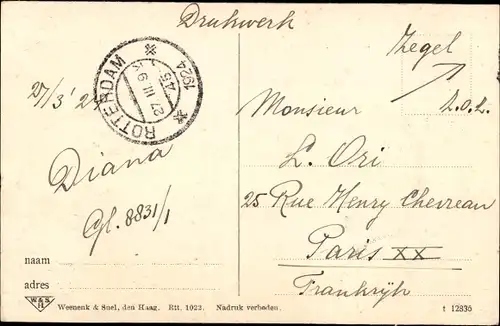 Drukwerk
Zegel
z.o.z.
27/3' 24
ROTTERDAM
27 III 9
1924
Diana
Gl. 8831/1
Monsieur
L. Ori
25 Rue Henry Chevreau
Paris XX
Frankrijk
naam
adres
W&S
H
Weenenk & Snel, den Haag. Rtt. 1023. Nadruk verboden.
t 12836